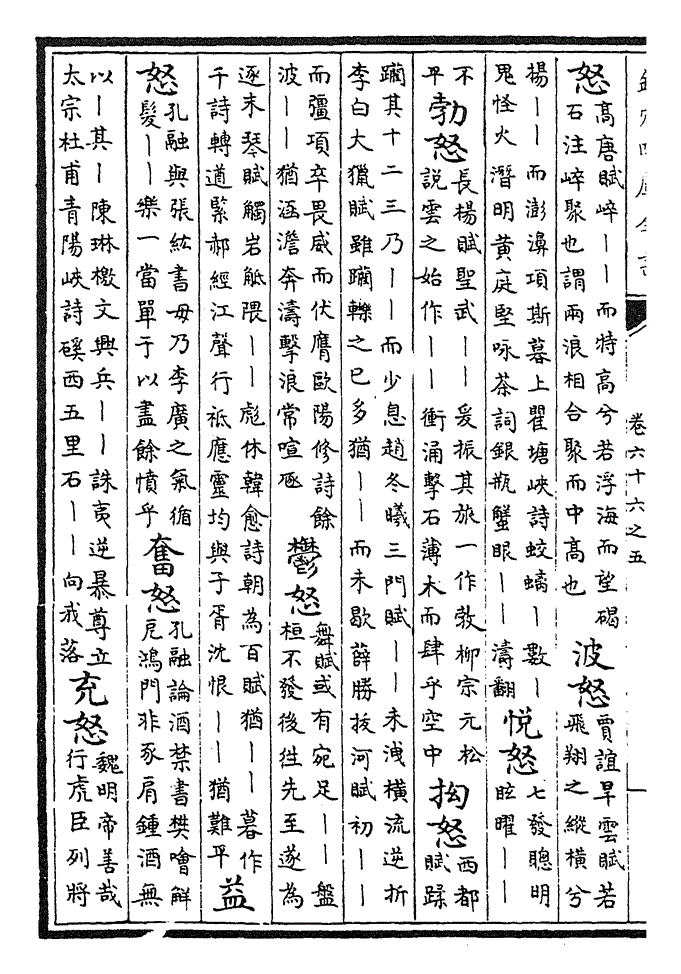 欽定四庫全書
卷六十六之五
怒
高唐賦崪｜｜而特高兮若浮海而望碣
石注崪聚也謂兩浪相合聚而中高也
波怒
賈誼旱雲賦若
飛翔之縱橫兮
揚｜｜而澎濞項斯暮上瞿塘峽詩蛟螭｜數｜
鬼怪火潛明黃庭堅咏茶詞銀瓶蟹眼｜｜濤翻
悅怒
七發聰明
眩曜｜｜
不
平
勃怒
長楊賦聖武｜｜爰振其旅一作敦柳宗元松
說雲之始作｜｜衝涌擊石薄木而肆乎空中
拗怒
西都
賦蹂
躪其十二三乃｜｜而少息趙冬曦三門賦｜｜未洩橫流逆折
李白大獵賦雖躪轢之已多猶｜｜而未歇薛勝拔河賦初｜｜
而彊項卒畏威而伏膺歐陽修詩餘
波｜｜猶涵澹奔濤擊浪常喧豗
鬱怒
舞賦或有宛足｜｜盤
桓不發後往先至遂為
逐末琴賦觸岩觝隈｜｜彪休韓愈詩朝為百賦猶｜｜暮作
千詩轉遒緊郝經江聲行祗應靈均與子胥沈恨｜｜猶難平
益
怒
孔融與張紘書毋乃李廣之氣循
髮｜｜樂一當單于以盡餘憤乎
奮怒
孔融論酒禁書樊噲解
戹鴻門非豕肩鍾酒無
以｜其｜陳琳檄文興兵｜｜誅夷逆暴尊立
太宗杜甫青陽峽詩磎西五里石｜｜向我落
充怒
魏明帝善哉
行虎臣列將